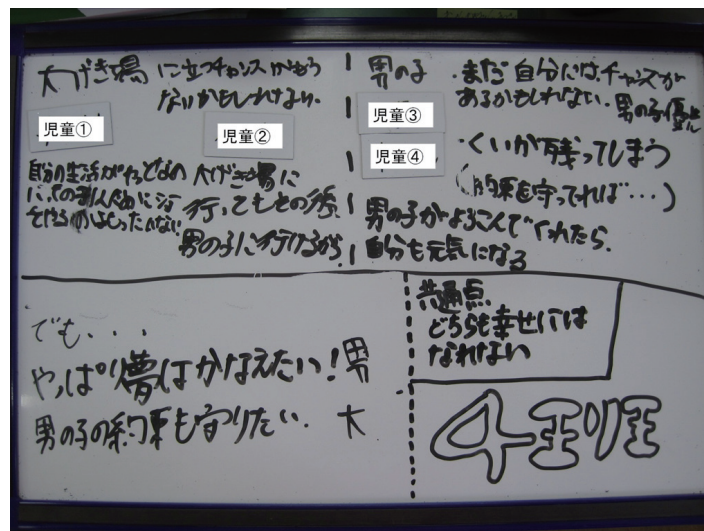 大げき場に立つチャンスがもう
ないかもしれない。
児童①
児童②
自分の生活がやっとなの
に、
大げき場に
行ってもその後
男の子に行けるから
男の子
児童③
児童④
・まだ自分には、チャンスが
あるかもしれない。男の子優先
・くいが残ってしまう
(約束を守ってれば…)
男の子がよろこんでくれたら、
自分も元気になる
でも・・・
やっぱり夢はかなえたい!男
男の子の約束も守りたい。大
共通点
どちらも幸せには
なれない
4班